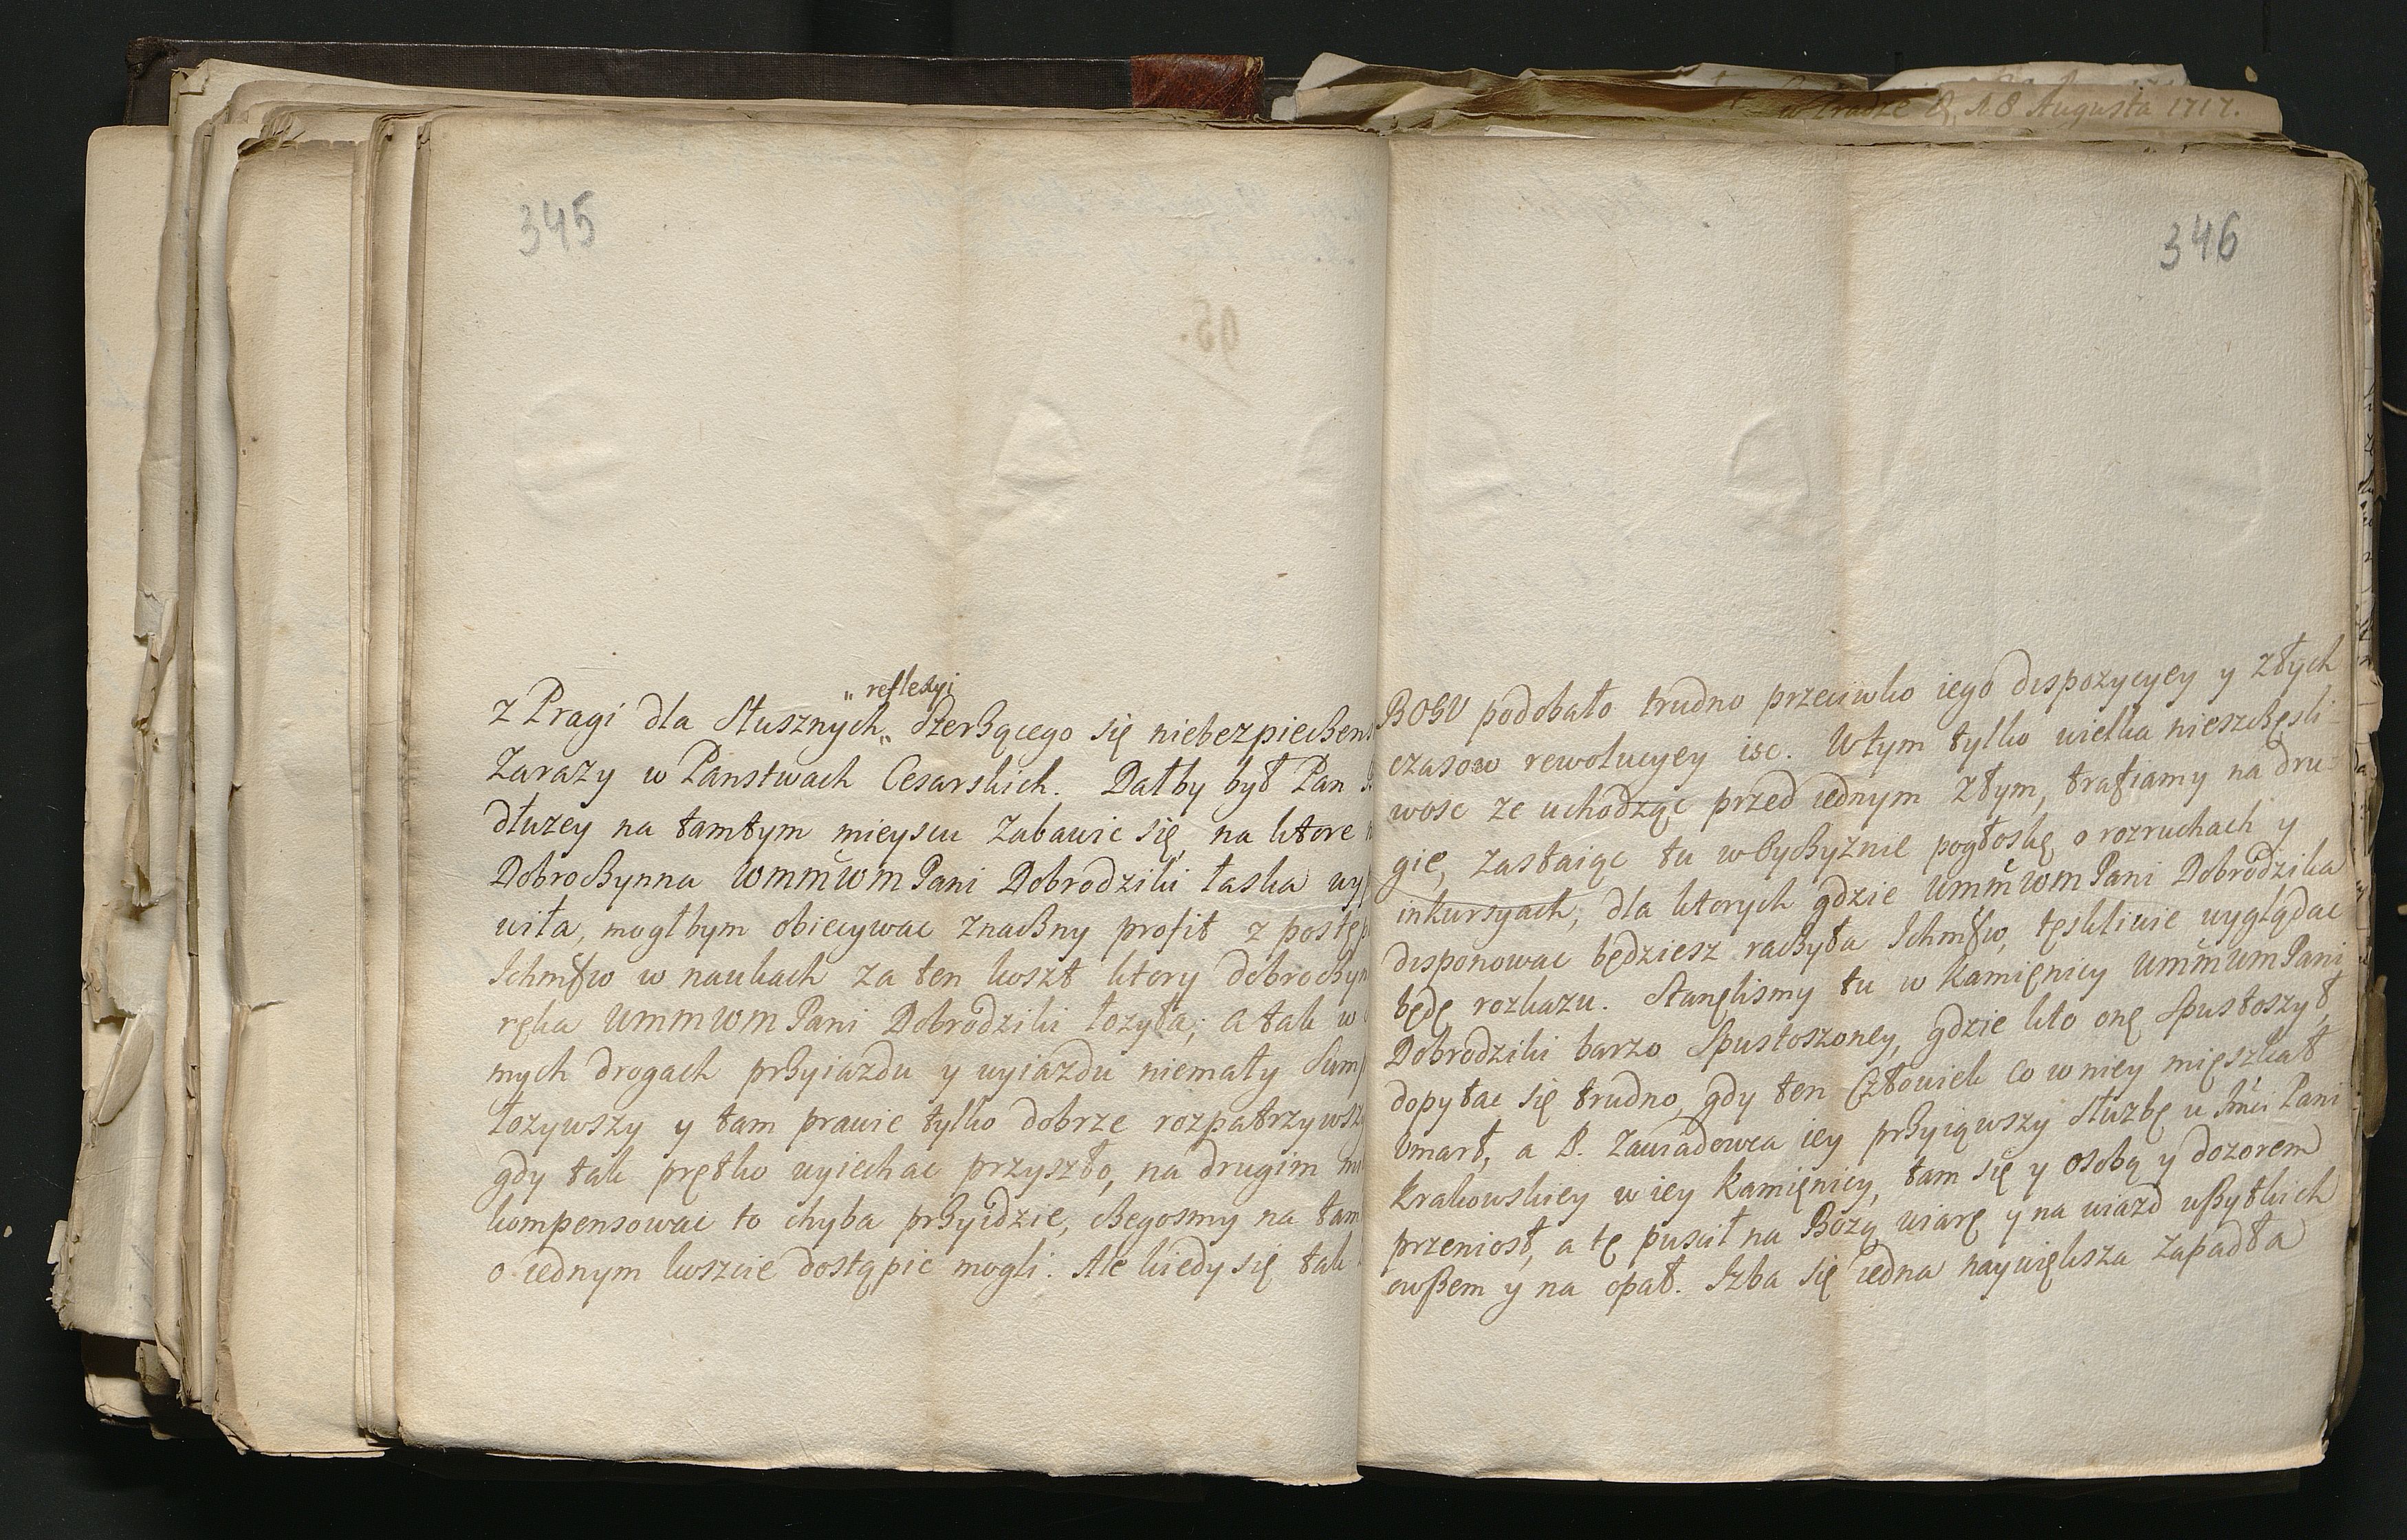 Augusta 1717.
345
„ reflexyi
z Pragi dla słusznych „ szerzącego się niebezpieczens
Zarazy w Panstwach Cesarskich. Dałby był Pan
dłuzey na tamtym mieyscu zabawic się, na ktore
Dobroczynna WmmWm Pani Dobrodziki łaska wy
wiła, mogłbym obiecywac znaczny profit z postęp
Ichmśw w naukach za ten koszt ktory dobroczyn
ręka WmmWm Pani Dobrodziki łozyła; a tak w
mych drogach przyiazdu y wyiazdu niemały sum
łozywszy y tam prawie tylko dobrze rozpatrzywszy
gdy tak prętko wyiechac przyszło, na drugim
kompensowac to chyba przyidzie, czegosmy na tam
o iednym koszcie dostąpic mogli. Ale kiedy się tak
346
BOGU podobało trudno przeciwko iego dispozycyey y złych
czasow rewolucyey isc. W tym tylko wielka nieszczęsli-
wosc ze uchodząc przed iednym złym, trafiamy na dru-
gie, zastaiąc tu w Oyczyznie pogłoskę o rozruchach y
inkursyach, dla ktorych gdzie WmmWm Pani Dobrodzika
disponowac będziesz raczyła Ichmśw, tęskliwie wyglądac
będę rozkazu. Stanęlismy tu w Kamięnicy WmmWm Pani
Dobrodziki barzo spustoszoney, gdzie kto onę spustoszył,
dopytac się trudno, gdy ten Człowiek co w niey mięszkał
vmarł, a P. Zawiadowca iey przyiąwszy słuzbę u Jmći Pani
Krakowskiey w iey Kamięnicy, tam się y osobą y dozorem
przeniosł, a tę puscił na Bozą wiarę y na wiazd wszytkich
owszem y na opał. Izba się iedna naywiększa zapadła